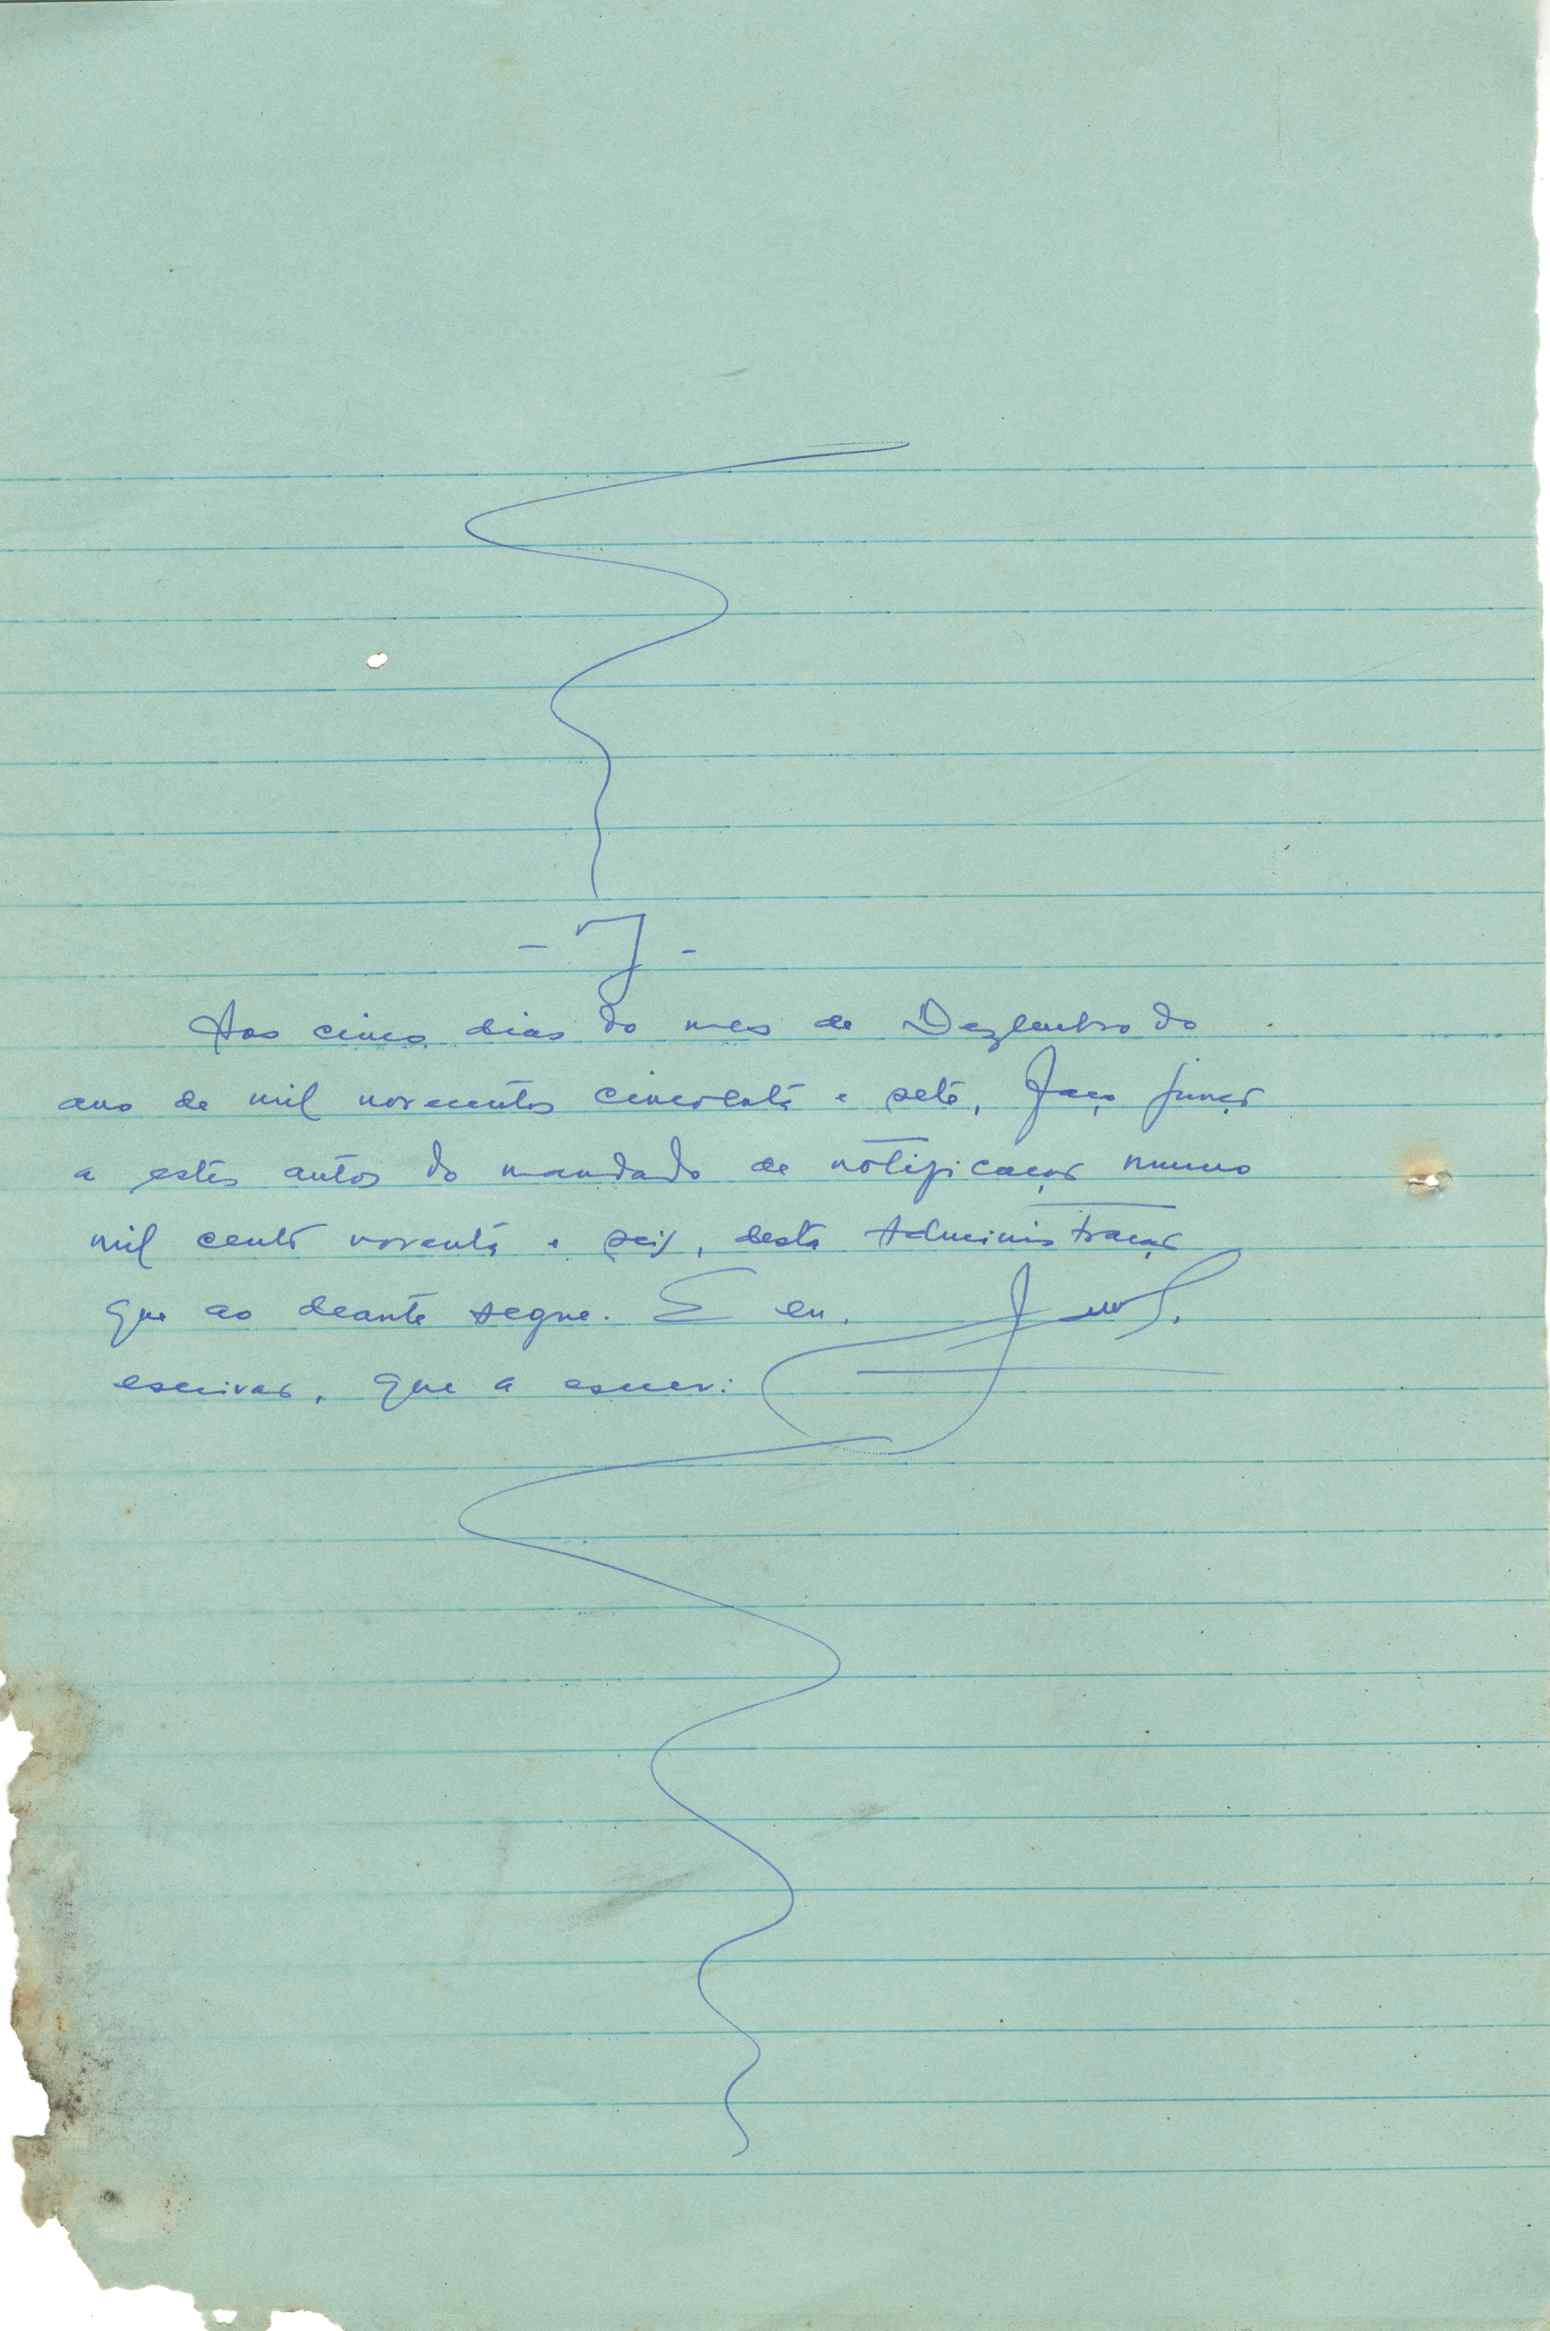 - J -
Aos cinco dias do mes de Dezembro do
ano de mil novecentos cincoenta e sete, faço junção
a estes autos do mandado de notificação numero
mil cento noventa e seis, desta Administração
que ao deante segue. E eu,
escrivão, que a escrevi